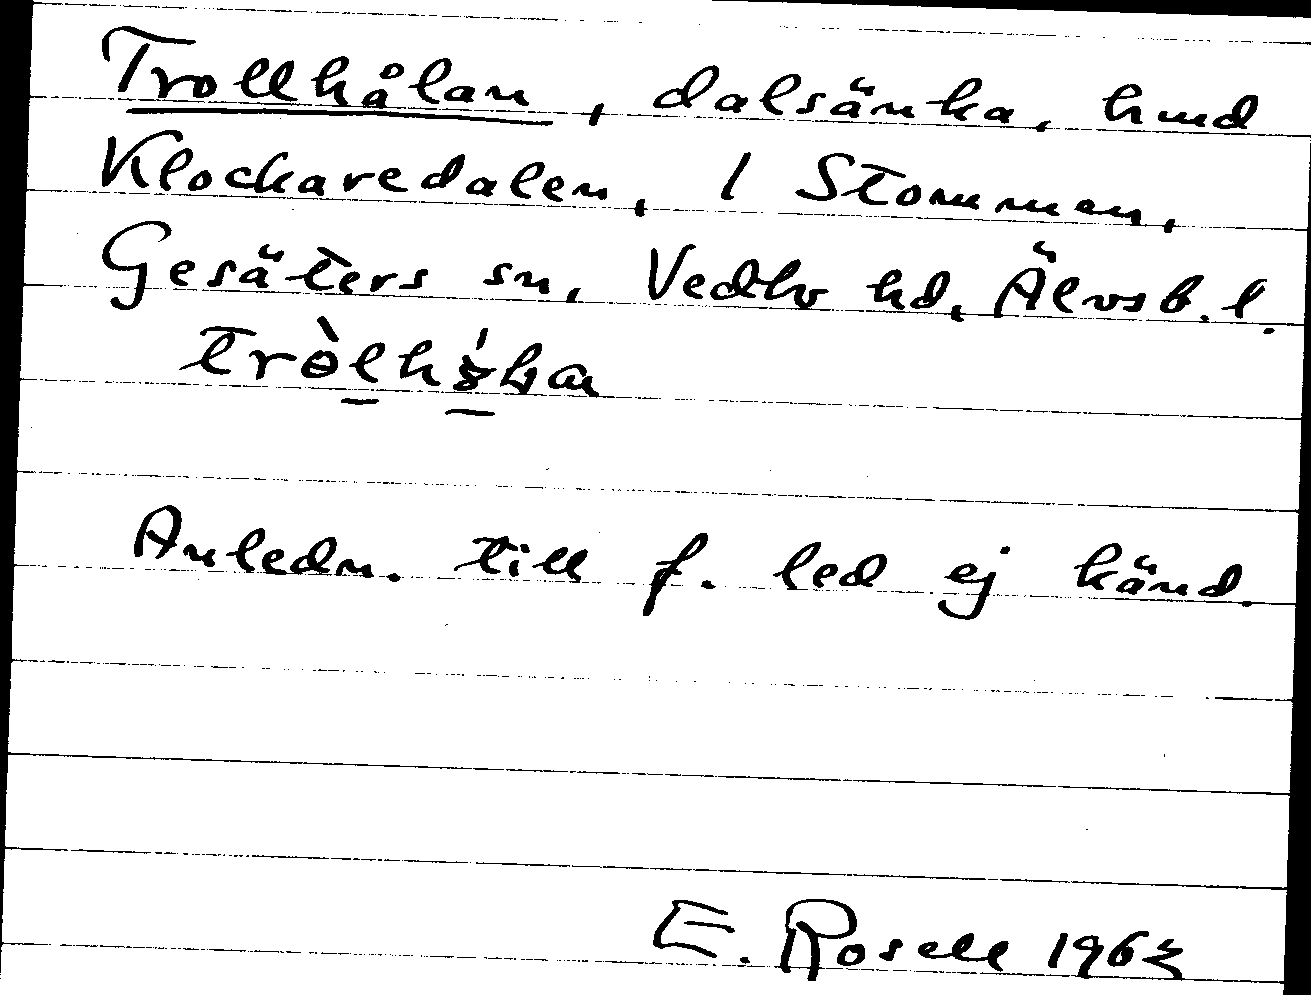 Trollhålan, dalsänka, hmd
Klockaredalen, 1 Stommen,
Gesäters sn, Vedbo hd, Älvsb. l.
Anledn. till f. led ej känd.
E. Rosell 1963